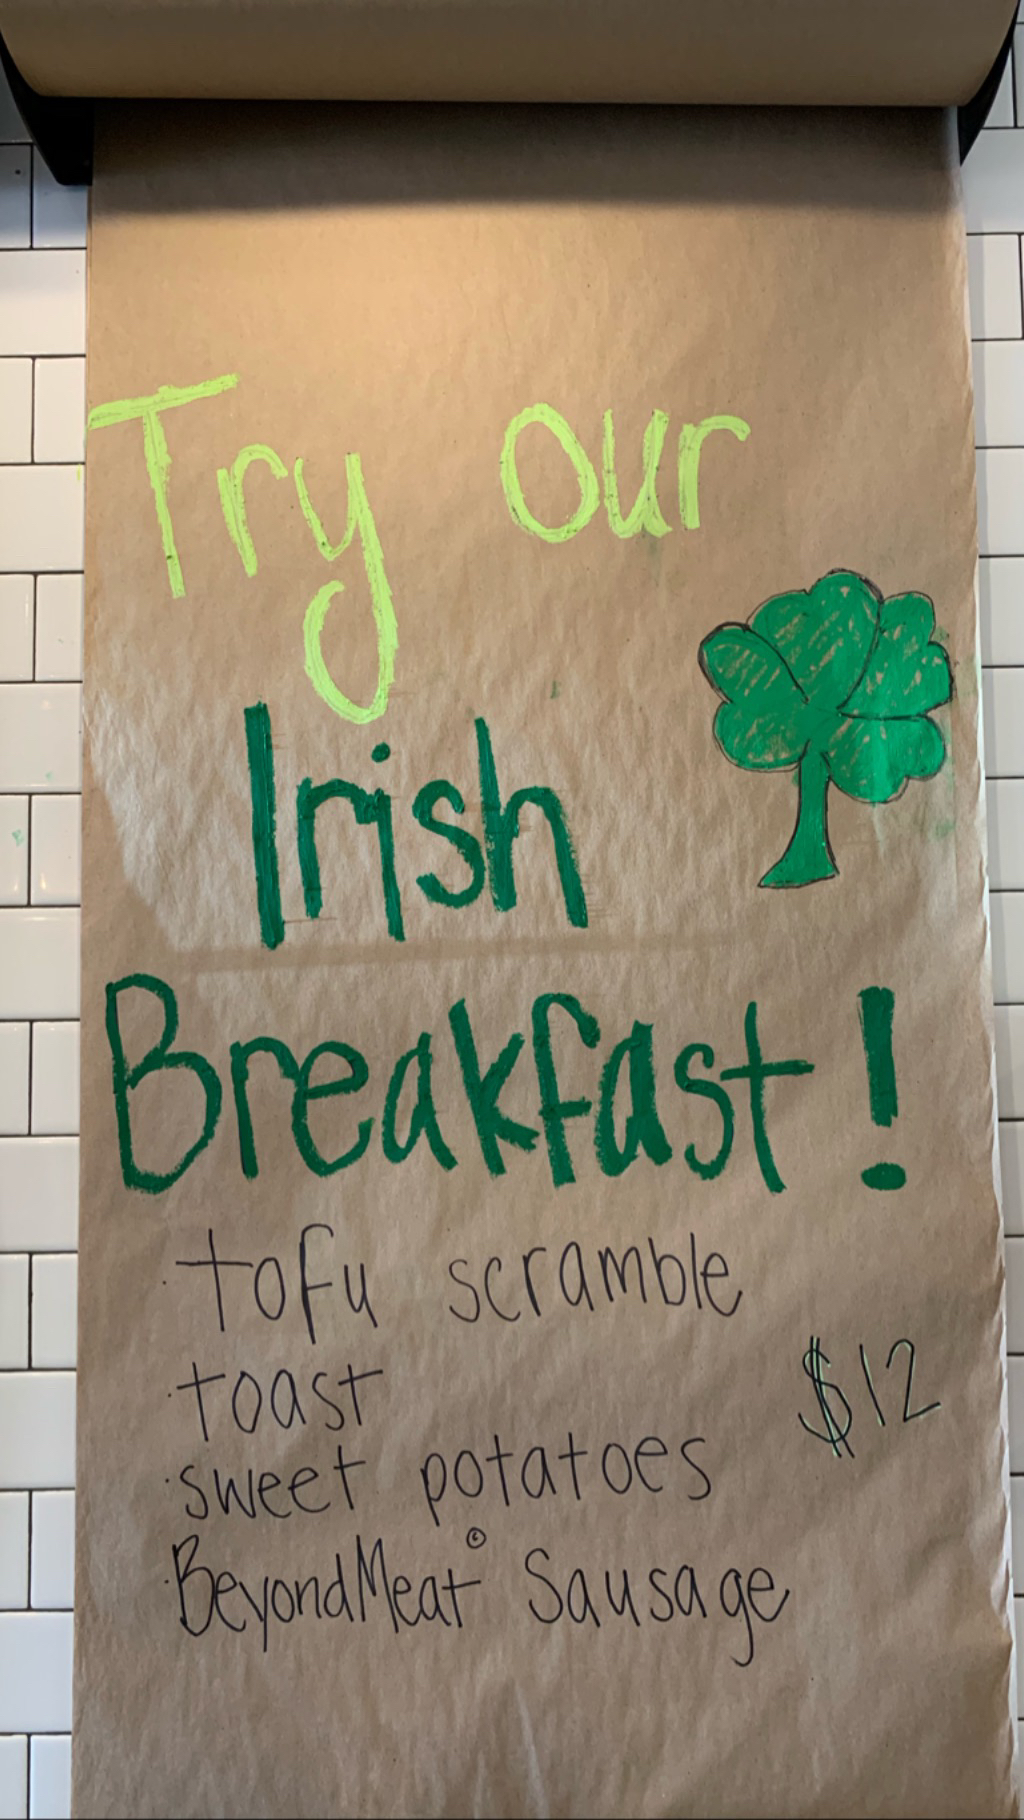 Try our
Irish
Breakfast!
·tofu scramble
·toast
$12
·sweet potatoes
·BeyondMeat© Sausage